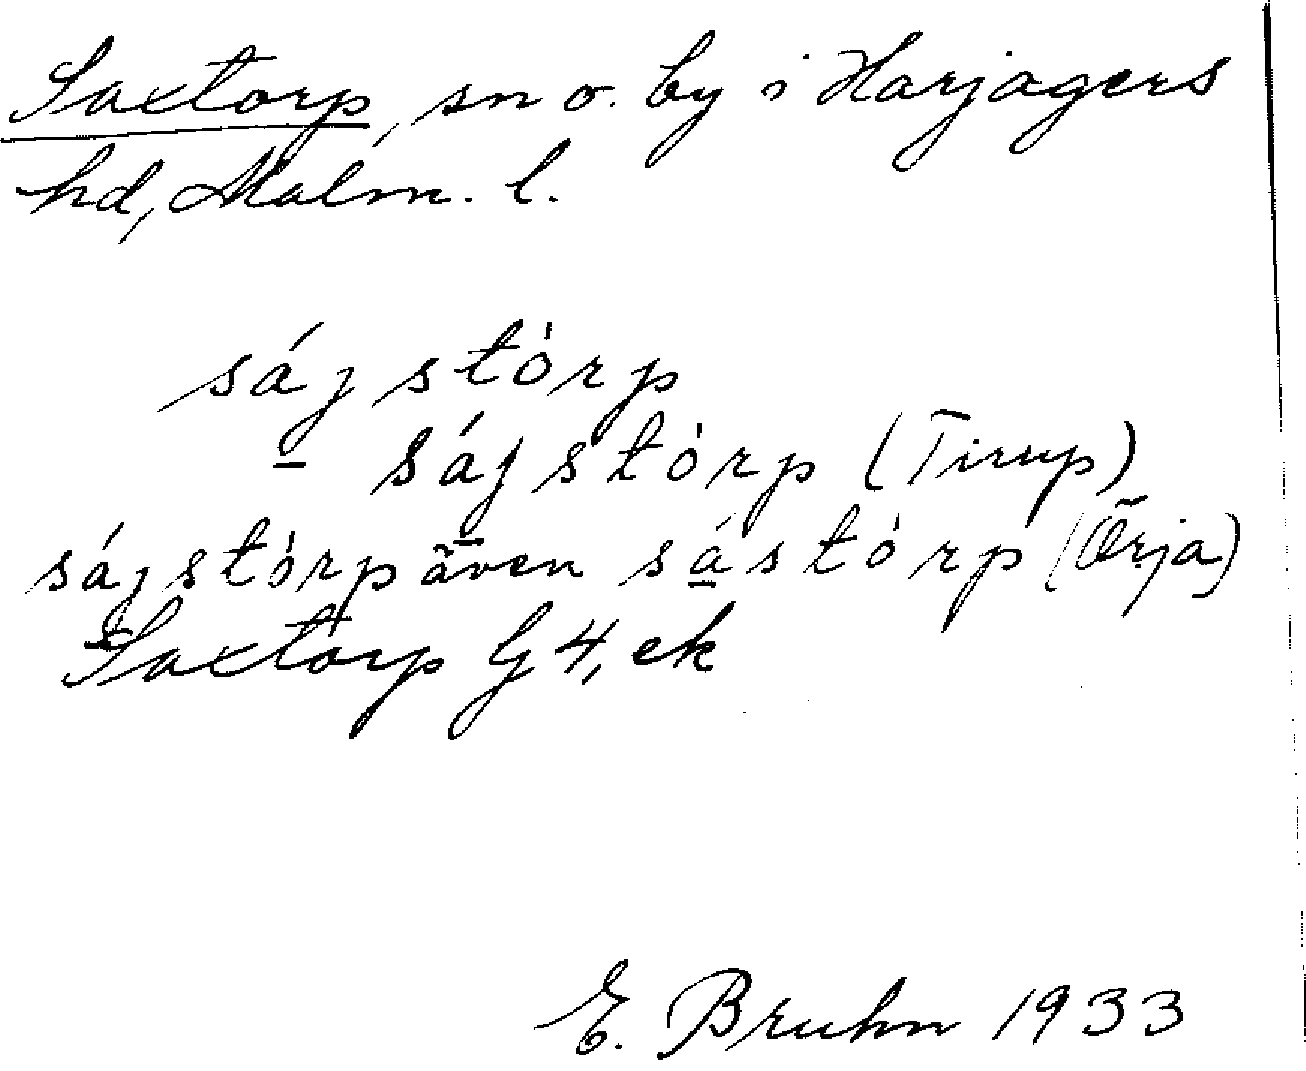 Saxtorp, sn o. by i Harjagers
hd, Malm. l.
sájstòrp
- sájstòrp (Tirup)
sájstòrp även sástòrp (Örja)
Saxtorp G4, ek
E. Bruhn 1933